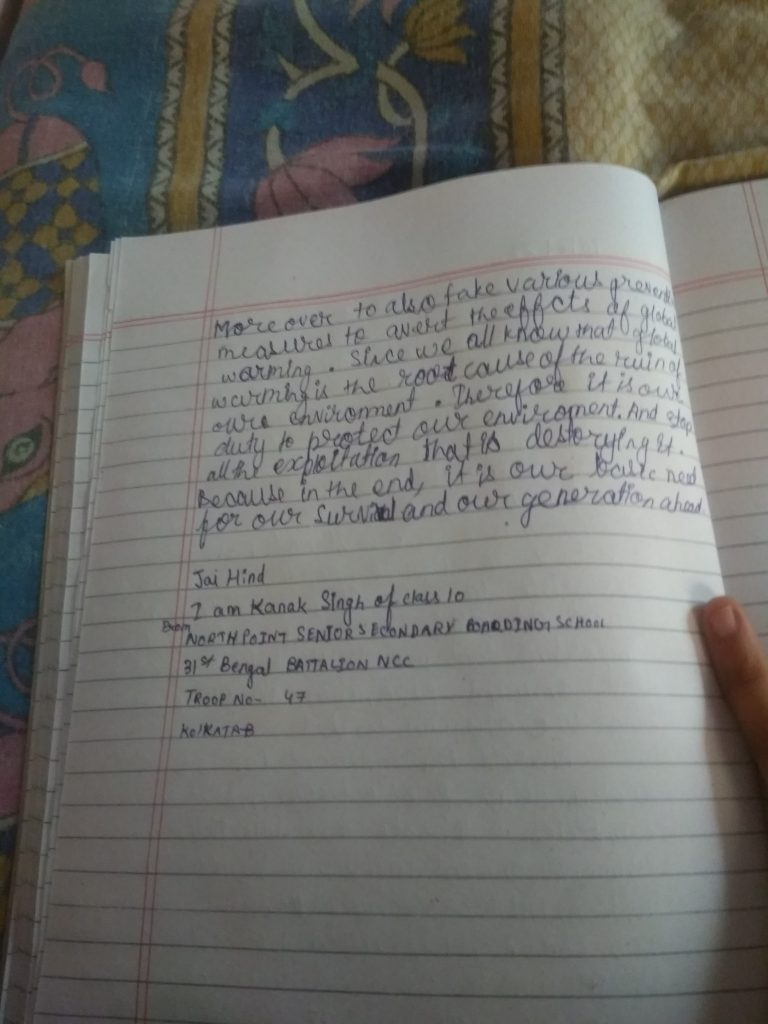 Moreover to also take various preventi
measures to avert the effects of global
warming. Since we all know that global
warming is the root cause of the ruin of
oure environment. Therefore it is our
duty to protect our enviroment. And stop
all the exploitation that is destorying it.
Because in the end, it is our basic need
for our survival and our generation ahead.
Jai Hind
I am Kanak Singh of class 10
From
NORTH POINT SENIOR SECONDARY BOARDING SCHOOL
31st Bengal BATTALION NCC
TROOP No- 47
KOlKATA-B